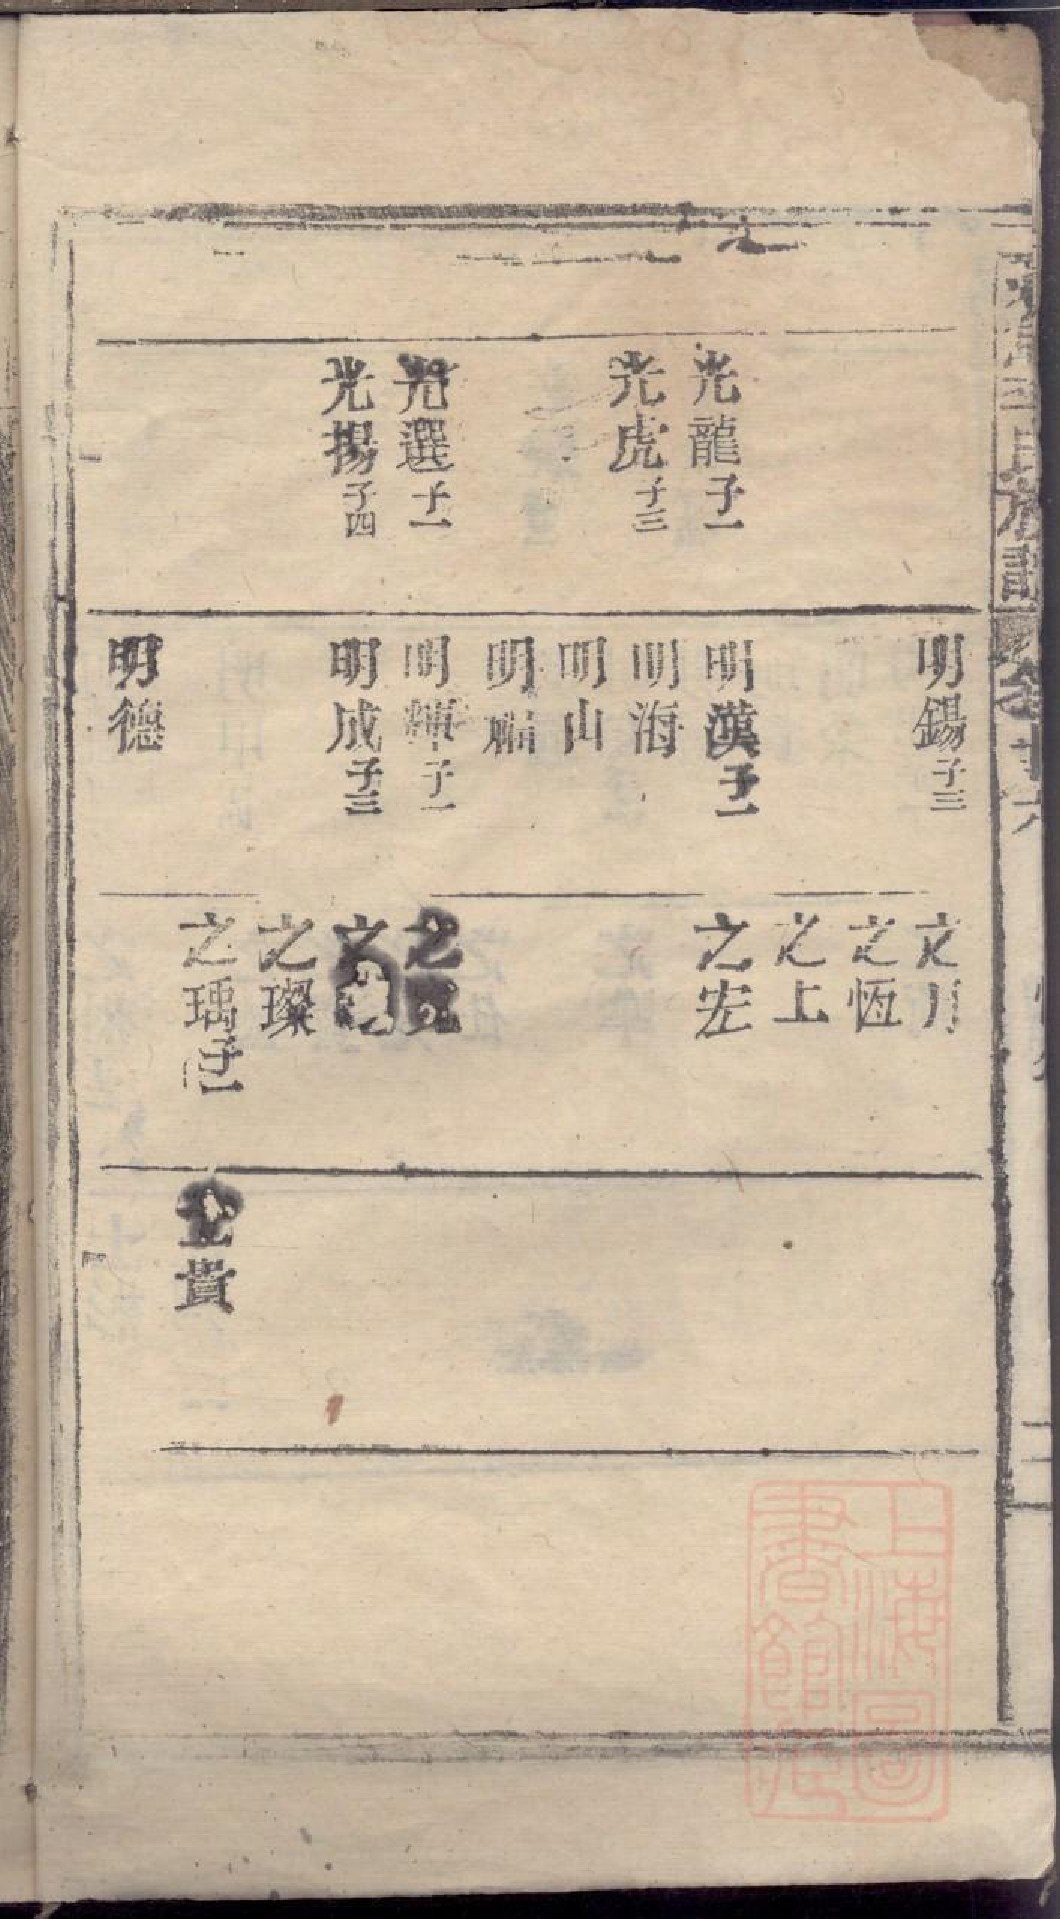 光龍子一
光虎子三
光選子一
光揚子四
明錫子三
明漢子一
明海
明山
明
明輝子一
明成子三
明德
之恆
之上
之宏
之
之
之璨
之瑀子一
貴
氏族譜
上海圖書館藏